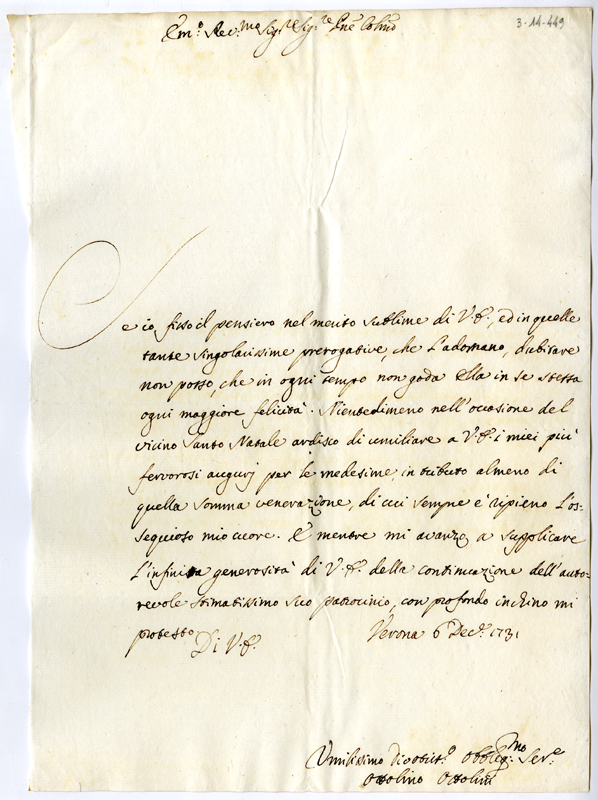 3-14-449
Em.º Rev.mo Sig.re Sig.re Pñe Colmo
Se io fisso il pensiero nel merito sublime di V.E., ed in quelle
tante singolarissime prerogative, che l'adornano, dubitare
non posso, che in ogni tempo non goda Ella in se stessa
ogni maggiore felicità. Nientedimeno nell'occasione del
vicino Santo Natale ardisco di umiliare a V.E. i miei più
fervorosi augurj per le medesime, in tributo almeno di
quella somma venerazione, di cui sempre è ripieno l'os-
sequioso mio cuore. E mentre mi avanzo a supplicare
l'infinita generosità di V.E. della continuazione dell'auto-
revole stimatissimo suo patrocinio, con profondo inchino mi
protesto
Di V.E.
Verona 6 Dec.e 1731
Umilissimo Divotiss.º Obblig.mo Ser.e
Ottolino Ottolini